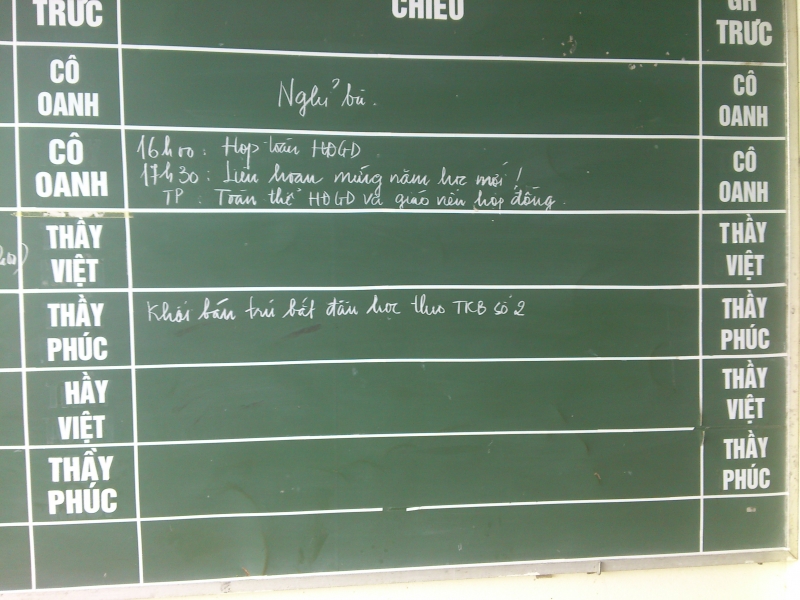 TRỰC CHIỀU GH TRỰC
CÔ OANH Nghỉ bù. CÔ OANH
CÔ OANH 16h00: Họp toàn HĐGD CÔ OANH
17h30: Liên hoan mừng năm học mới!
TP: Toàn thể HĐGD và giáo viên hợp đồng.
THẦY VIỆT THẦY VIỆT
THẦY PHÚC Khối bán trú bắt đầu học theo TKB số 2 THẦY PHÚC
HẦY VIỆT THẦY VIỆT
THẦY PHÚC THẦY PHÚC